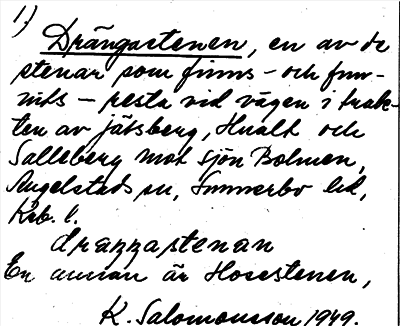 1.)
Drängastenen, en av de
stenar som finns – och fun-
nits – resta vid vägen i trak-
ten av Jätsberg, Hualt och
Salleberg mot sjön Bolmen,
Angelstads sn, Sunnerbo hd,
Krb. l.
drannastenan
En annan är Hosestenen,
K. Salomonsson 1949.